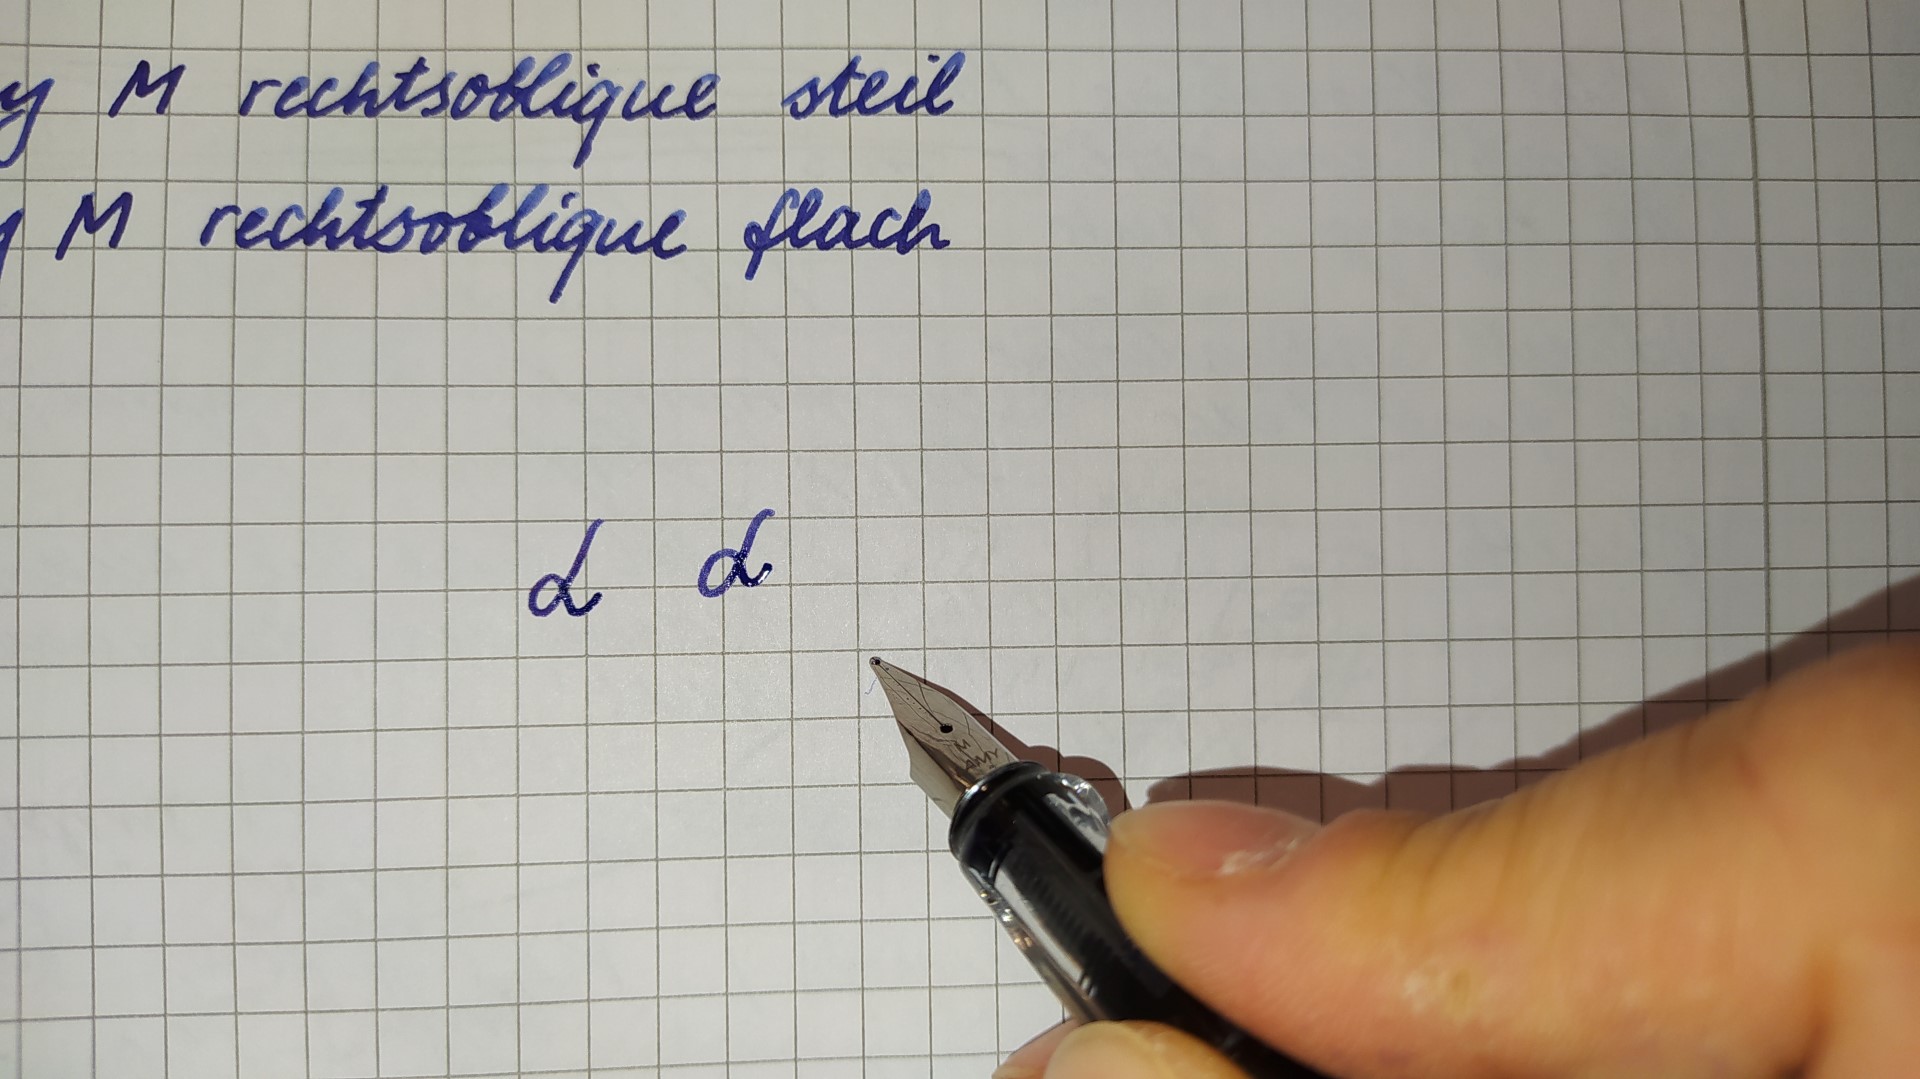 y M rechtsoblique steil
y M rechtsoblique flach
d d
M
LAMY